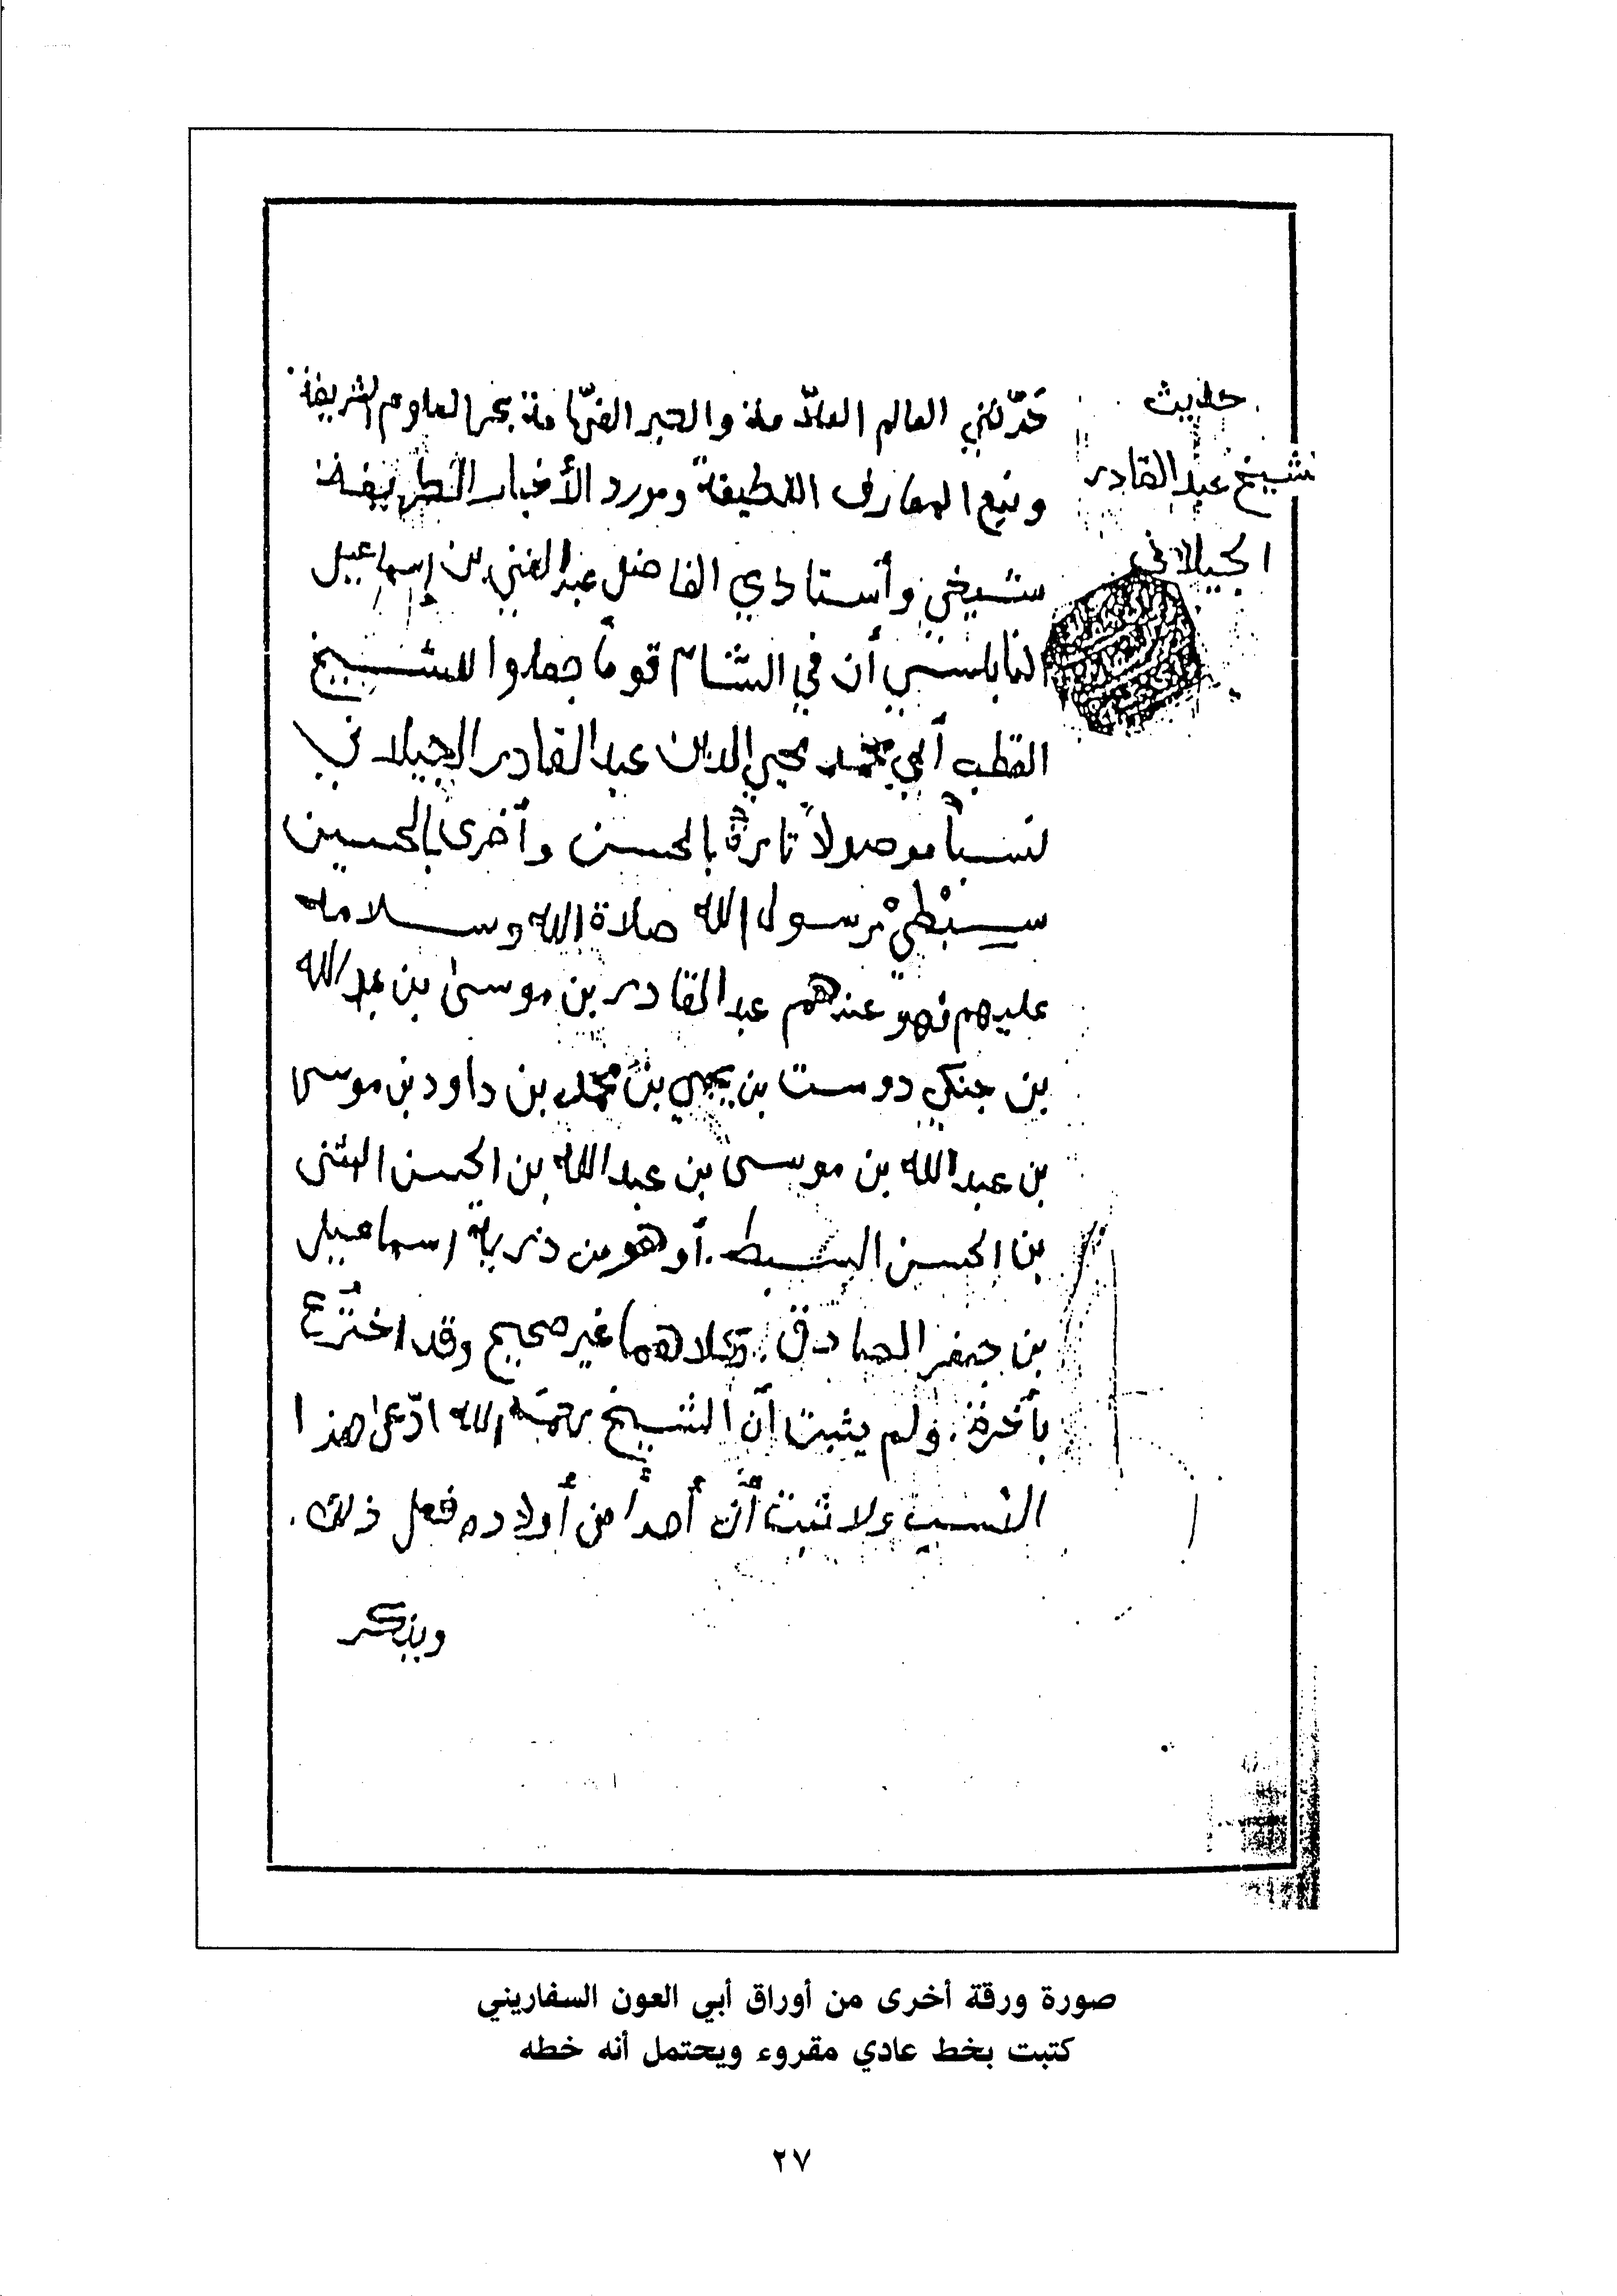 حديث
الشيخ عبد القادر
الجيلاني
حَدّثني العالم العلاّمة والحبر الفهّامة بحر العلوم الشريفة
ونبع المعارف اللطيفة ومورد الأخبار الظريفة
شيخي وأستاذي الفاضل عبد الغني بن إسماعيل
النابلسي أن في الشام قوماً جعلوا للشيخ
القطب أبي محمد محيي الدين عبد القادر الجيلاني
نسباً موصولاً تارةً بالحسن وأخرى بالحسين
سِبْطيْ رسول الله صلاة الله وسلامه
عليهم فهو عندهم عبد القادر بن موسى بن عبد الله
بن جنكي دوست بن يحيى بن محمد بن داود بن موسى
بن عبد الله بن موسى بن عبد الله بن الحسن المثنى
بن الحسن السبط. أو هو من ذرية اسماعيل
بن جعفر الصادق. وكلاهما غير صحيح وقد اختُرع
بأَخرة. ولم يثبت أن الشيخ رحمه الله ادّعى هذا
النسب ولا ثبت أن أحداً من أولاده فعل ذلك.
ويذكر
صورة ورقة أخرى من أوراق أبي العون السفاريني
كتبت بخط عادي مقروء ويحتمل أنه خطه
٢٧